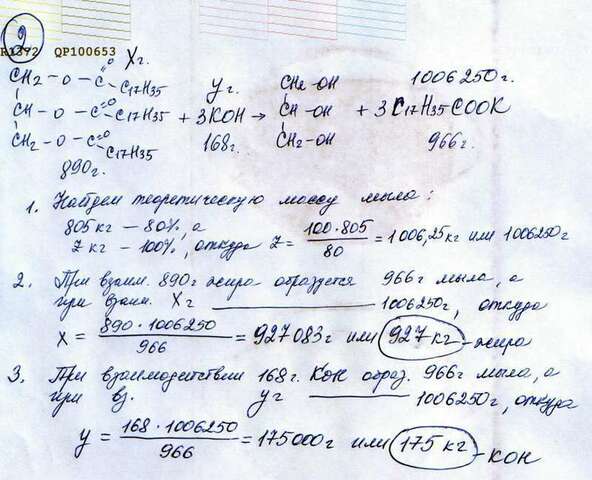 9
R1372 QP100653
Xг.
CH2 - O - C=O C17H35 yг. CH2-OH 1006250г.
CH - O - C=O C17H35 + 3KOH → CH-OH + 3C17H35COOK
CH2 - O - C=O C17H35 168г. CH2-OH 966г.
890г.
1. Найдем теоретическую массу мыла:
805 кг — 80%, а
Z кг — 100%, откуда Z = 100·805 / 80 = 1006,25 кг или 1006250г
2. При взаим. 890г жира образуется 966г мыла, а
при взаим. Xг ———— 1006250г, откуда
X = 890·1006250 / 966 = 927083г или 927 кг - жира
3. При взаимодействии 168г. KOH образ. 966г мыла, а
при вз. yг ———— 1006250г, откуда
y = 168·1006250 / 966 = 175000г или 175 кг - KOH